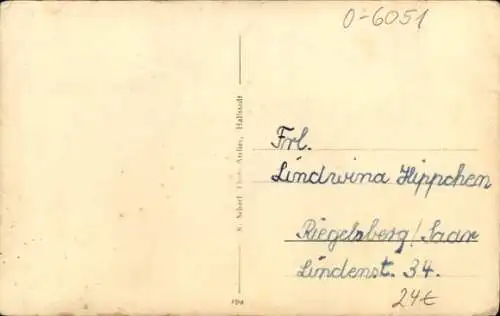 0-6051
N. Scharf, Atelier, Hallstadt
Frl.
Lindwina Hippchen
Riegelsberg/Saar
Lindenst. 34.
24€